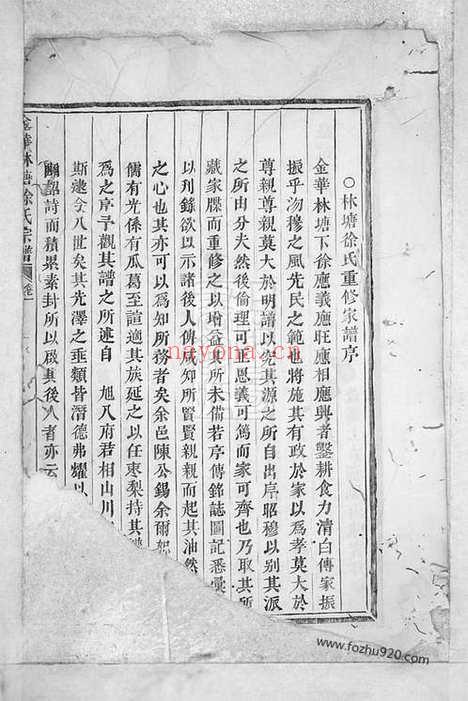 ○林塘徐氏重修家譜序
金華林塘下徐應義應旺應相應興者鑿耕食力清白傳家振
振乎沕穆之風先民之範也將施其有政於家以爲孝莫大於
尊親尊親莫大於明譜以究其源之所自出序昭穆以別其派
之所由分夫然後倫理可正恩義可篤而家可齊也乃取其所
藏家牒而重修之以增益其所未備若序傳銘誌圖記悉彙
以刋錄欲以示諸後人俾咸知所賢賢親親而起其油然
之心也其亦可以爲知所務者矣余邑陳公錫余爾恕
儒有光係有瓜葛至誼適其族延之以任棗梨持其譜
爲之序予觀其譜之所述自 旭八府君相山川
斯逮今八世矣其光澤之垂類皆潛德弗耀以
關詔詩而積累素封所以啟其後人者亦云
金華林塘徐氏宗譜 卷
nayona.cn
www.fozhu920.com